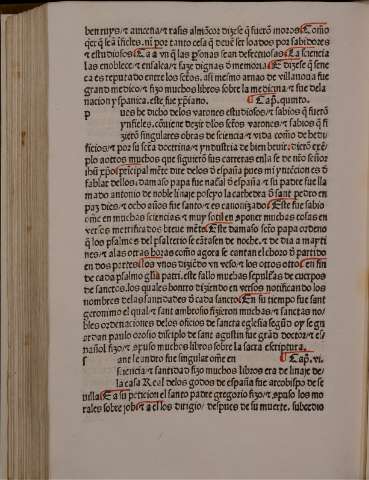 ben ruyz ⁊ auicena ⁊ rasis almãçor dizese q̃ fuerõ moros Como
q̃er q̃ le a ĩfieles. ni por tanto cesa q̃ deuẽ ser loados por sabidores
⁊ estudiosos Ca a vn q̃ las psonas sean defectuosas La sciencia
las enoblece ⁊ enfalca ⁊ faze dignas d̃ memoria E dizese q̃ sene
ca es reputado entre los sctõs. asi mesmo arnao de villanoua fue
grand medico ⁊ fizo muchos libros sobre la medicina ⁊ fue dela
nacion yspanica. este fue xp̃iano. Cap̃. quinto.
p ues de dicho delos varones estudiosos ⁊ sabios q̃ fuerõ
ynfieles. cõuiene dezir dlos sctõs. varones ⁊ sabios q̃ fi
zierõ singulares obras de sciencia ⁊ vida como de bedi
ficios ⁊ por su sctã doctrina ⁊ yndustria de bien beuir. dierõ exẽ
plo aottos muchos que siguierõ sus carreras enla se de ñro señor
ihũ xp̃o principal mẽte dire delos d̃ españa pues mi yntẽcion es d̃
fablar dellos. damaso papa fue naçal d̃ españa ⁊ su padre fue lla
mado antonio de noble linaje poseyo la cathedra d̃ sant pedro en
paz dies ⁊ ocho años fue santo ⁊ es canonizado Este fue sabio
ome en muchas sciencias ⁊ muy sotil en aponer muchas cosas en
versos metrificados breue mẽte Este damaso sctõ papa ordeno
q̃ los psalmos del psalterio se cãtasen de noche. ⁊ de dia a mayti
nes ⁊ alas otras horas como agora se cantan el abozo d̃ partido
en dos partes los vnos dizieđo vn verso ⁊ los otros otro en fin
de cada psalmo gl̃ia patri. este fallo muchas sepulturas de cuerpos
de sanctos. los quales honrro diziendo en versos notificando los
nombres delas santidades d̃ cada sancto En su tiempo fue sant
geronimo el qual ⁊ sant ambrosio fizieron muchas ⁊ sanctas no/
bles ordenaciones delos oficios de sancta eglesia segũd oy se gu
ordan paulo orosio disciplo de sant agustin fue grãd doctor ⁊ es/
pañol fizo ⁊ apuso muchos libros sobre la sacra escriptura.
s ant leandro fue singular ome en Cap̃. vi.
sciencia ⁊ santidad fizo muchos libros era de linaje de/
la casa Real delos godos de españa fue arçobispo de se
uilla E a su peticion el santo padre gregorio fizo ⁊ apuso los mo
rales sobre job ⁊ a el los dirigio/ despues de su muerte. subcedio